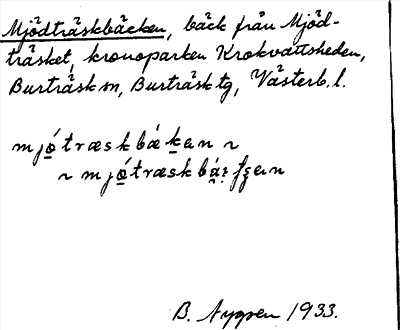 Mjödträskbäcken, bäck från Mjöd-
träsket, kronoparken Krokvattsheden,
Burträsk sn, Burträsk tg, Västerb. l.
mjǫ́træskbækan ~
~ mjǫ́træskbä
B. Nygren 1933.